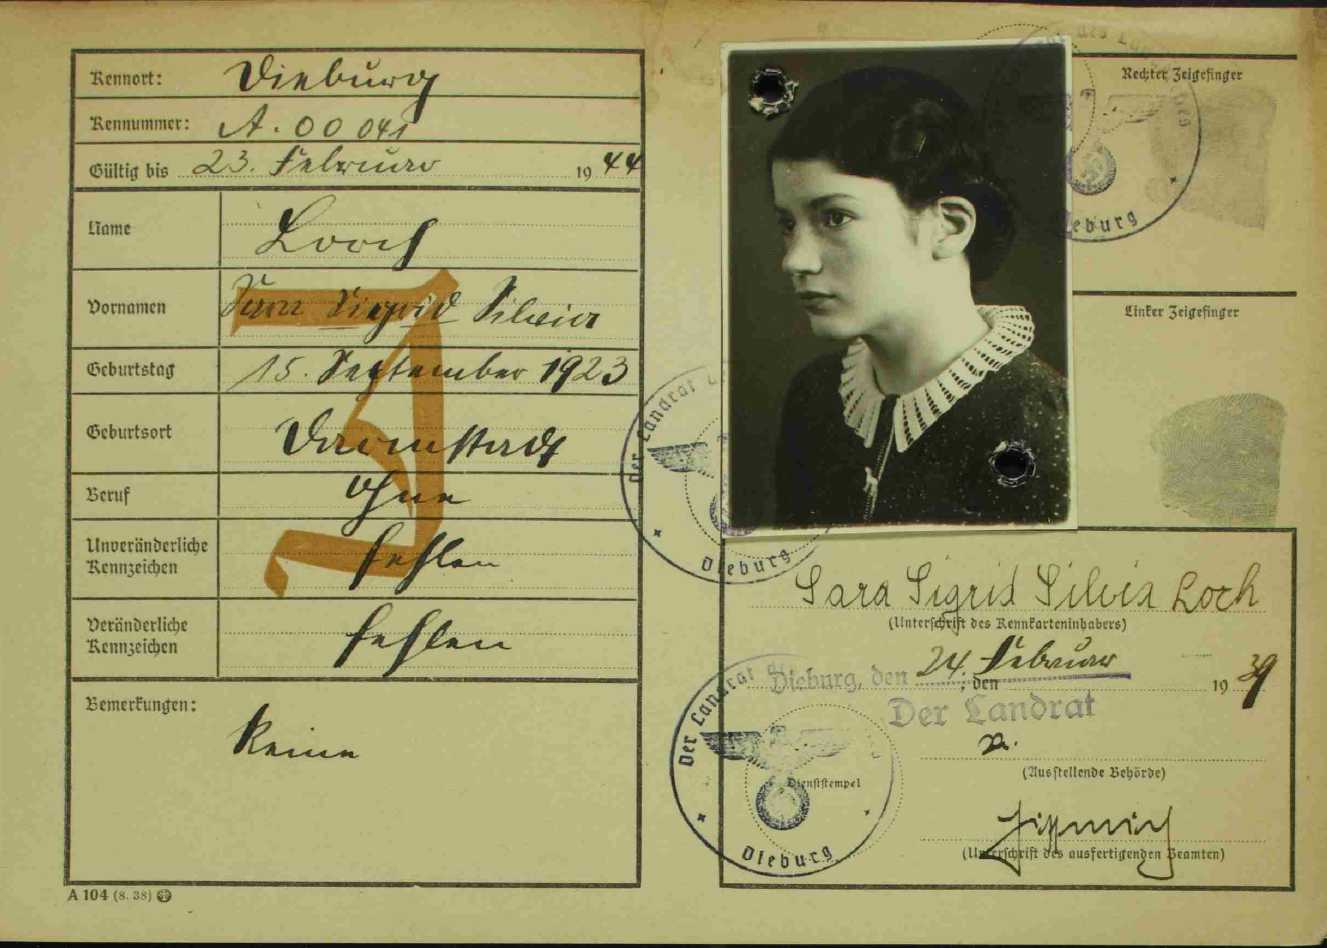 Kennort: Dieburg
Kennummer: A. 00 041
Gültig bis 23. Februar 1944
Name Lorch
Vornamen Sara Sigrid Silvia
Geburtstag 15. September 1923
Geburtsort Darmstadt
Beruf ohne
Unveränderliche
Kennzeichen fehlen
Veränderliche
Kennzeichen fehlen
Bemerkungen:
Keine
J
A 104 (8. 38)
Rechter Zeigefinger
Dieburg
Linker Zeigefinger
Der Landrat
Dieburg
Sara Sigrid Silvia Lorch
(Unterschrift des Kennkarteninhabers)
Dieburg, den 24. Februar 1939
, den
Der Landrat
(Ausstellende Behörde)
Der Landrat
Dienststempel
Dieburg
(Unterschrift des ausfertigenden Beamten)